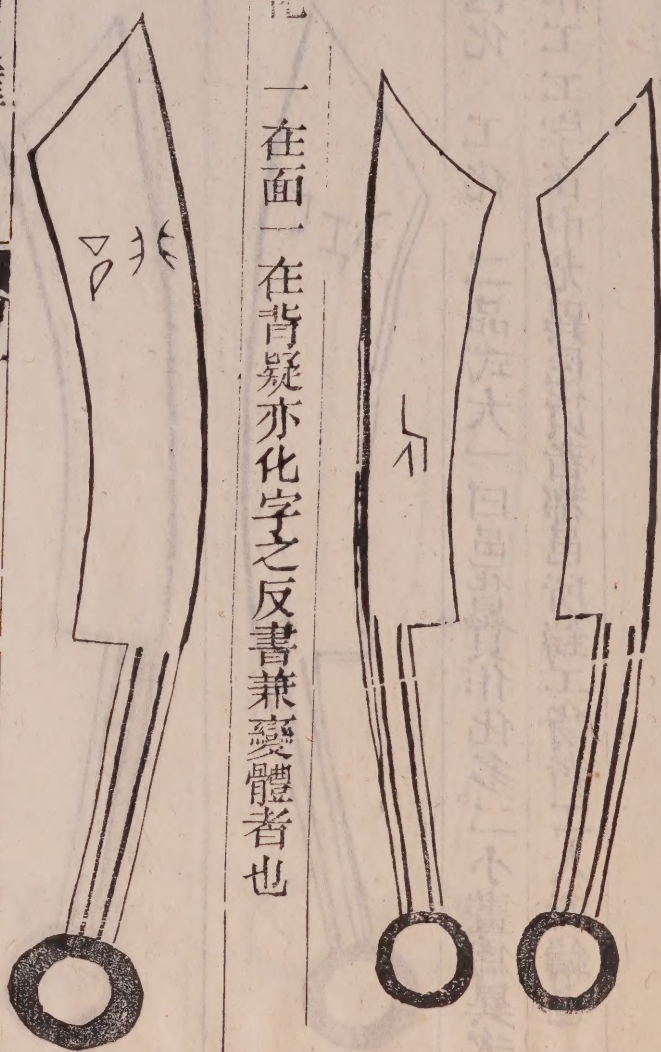 化 一在面一在背疑亦化字之反書兼變體者也